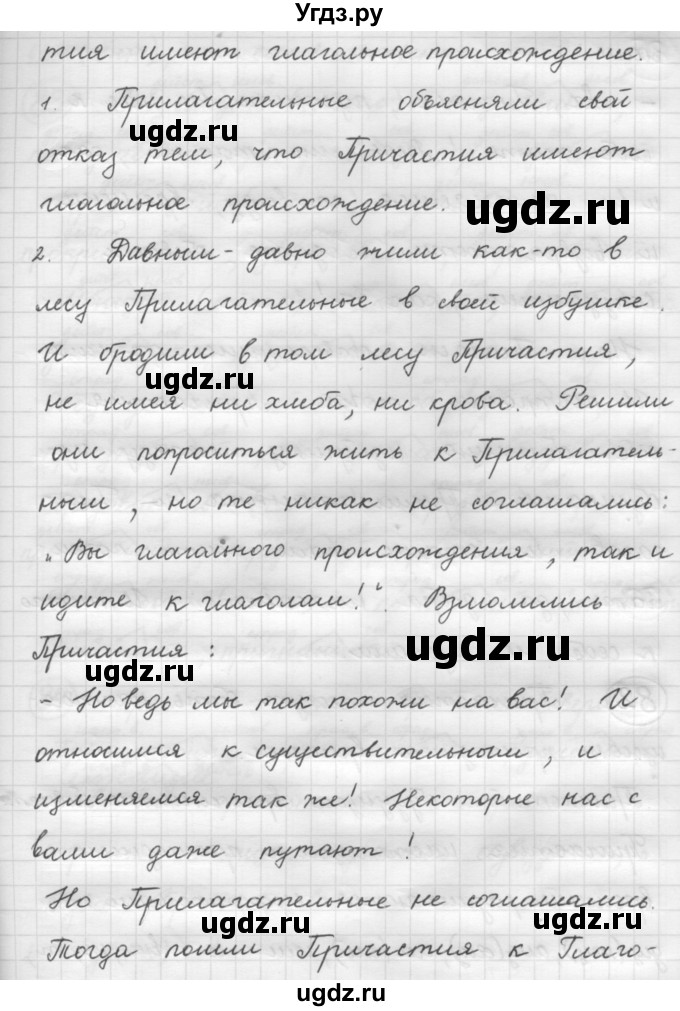 Угдз.ру
тия имеют глагольное происхождение.
1. Прилагательные объясняли свой
ugdz.ru
отказ тем, что Причастия имеют
глагольное происхождение.
ugdz.ru
2. Давным-давно жили как-то в
лесу Прилагательные в своей избушке.
И бродили в том лесу Причастия,
ugdz.ru
не имея ни хлеба, ни крова. Решили
они попроситься жить к Прилагатель-
ным, но те никак не соглашались:
„Вы глагольного происхождения, так и
идите к глаголам!“. Взмолились
Причастия:
ugdz.ru
ugdz.ru
- Но ведь мы так похожи на вас! И
относимся к существительным, и
изменяемся так же! Некоторые нас с
вами даже путают!
Но Прилагательные не соглашались.
ugdz.ru
ugdz.ru
Тогда пошли Причастия к Глаго-
ugdz.ru